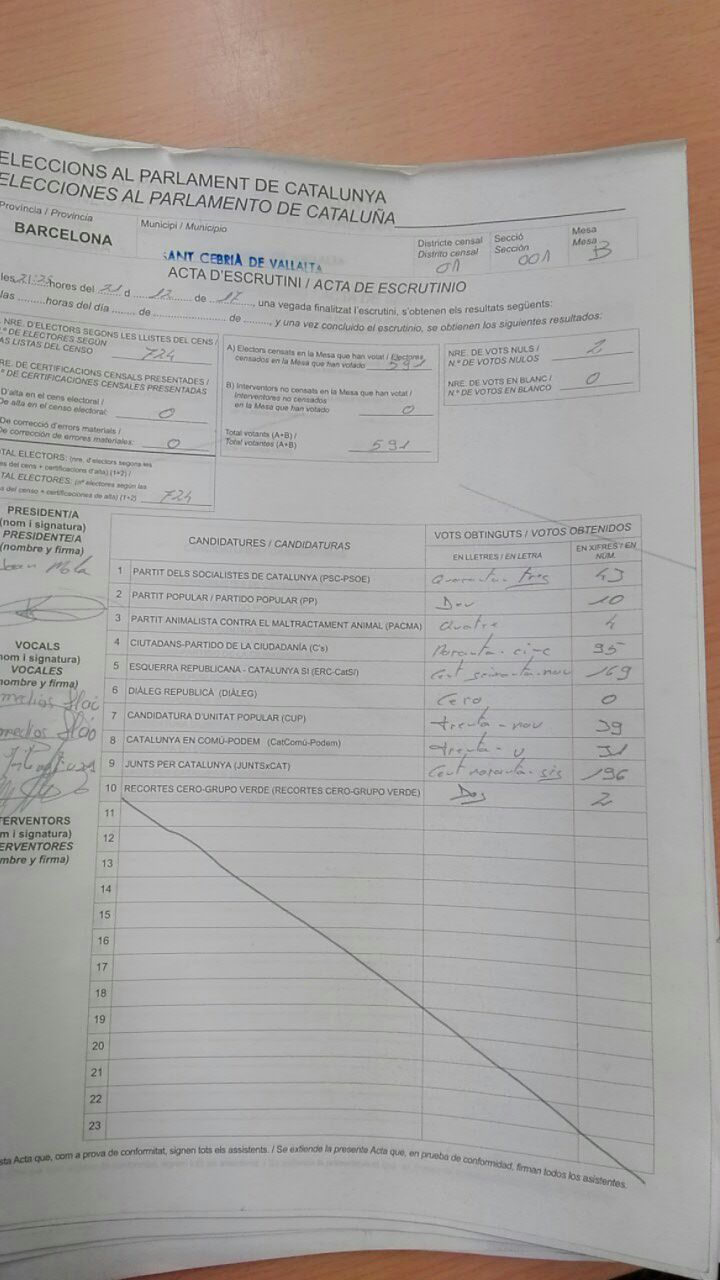 ELECCIONS AL PARLAMENT DE CATALUNYA
ELECCIONES AL PARLAMENTO DE CATALUÑA
Provincia / Provincia
BARCELONA
Municipi / Municipio
SANT CEBRIÀ DE VALLALTA
Districte censal
Distrito censal
01
Secció
Sección
001
Mesa
Mesa
B
ACTA D'ESCRUTINI / ACTA DE ESCRUTINIO
les 21:25 hores del 21 d 12 de 17, una vegada finalitzat l'escrutini, s'obtenen els resultats següents:
las .........horas del día ........ de .................... de ........, y una vez concluido el escrutinio, se obtienen los siguientes resultados:
NRE. D'ELECTORS SEGONS LES LLISTES DEL CENS /
N.º DE ELECTORES SEGÚN
AS LISTAS DEL CENSO 724
RE. DE CERTIFICACIONS CENSALS PRESENTADES /
º DE CERTIFICACIONES CENSALES PRESENTADAS
D'alta en el cens electoral /
De alta en el censo electoral: 0
De correcció d'errors materials /
De corrección de errores materiales: 0
TAL ELECTORS: (nre. d'electors segons les
es del cens + certificacions d'alta) (1+2) /
TAL ELECTORES: (nº electores según las
s del censo + certificaciones de alta) (1+2) 724
A) Electors censats en la Mesa que han votat / Electores
censados en la Mesa que han votado 591
B) Interventors no censats en la Mesa que han votat /
Interventores no censados
en la Mesa que han votado 0
Total votants (A+B) /
Total votantes (A+B) 591
NRE. DE VOTS NULS /
N.º DE VOTOS NULOS 2
NRE. DE VOTS EN BLANC /
N.º DE VOTOS EN BLANCO 0
PRESIDENT/A
(nom i signatura)
PRESIDENTE/A
(nombre y firma)
VOCALS
nom i signatura)
VOCALES
nombre y firma)
TERVENTORS
m i signatura)
ERVENTORES
mbre y firma)
CANDIDATURES / CANDIDATURAS
VOTS OBTINGUTS / VOTOS OBTENIDOS
EN LLETRES / EN LETRA
EN XIFRES / EN NÚM.
1 PARTIT DELS SOCIALISTES DE CATALUNYA (PSC-PSOE) Quaranta-tres 43
2 PARTIT POPULAR / PARTIDO POPULAR (PP) Deu 10
3 PARTIT ANIMALISTA CONTRA EL MALTRACTAMENT ANIMAL (PACMA) Quatre 4
4 CIUTADANS-PARTIDO DE LA CIUDADANÍA (C's) 95
5 ESQUERRA REPUBLICANA - CATALUNYA SÍ (ERC-CatSí) Cent seixanta-nou 169
6 DIÀLEG REPUBLICÀ (DIÀLEG) Cero 0
7 CANDIDATURA D'UNITAT POPULAR (CUP) trenta-nou 39
8 CATALUNYA EN COMÚ-PODEM (CatComú-Podem) trenta-u 31
9 JUNTS PER CATALUNYA (JUNTSxCAT) Cent noranta-sis 196
10 RECORTES CERO-GRUPO VERDE (RECORTES CERO-GRUPO VERDE) Dos 2
11
12
13
14
15
16
17
18
19
20
21
22
23
sta Acta que, com a prova de conformitat, signen tots els assistents. / Se extiende la presente Acta que, en prueba de conformidad, firman todos los asistentes.